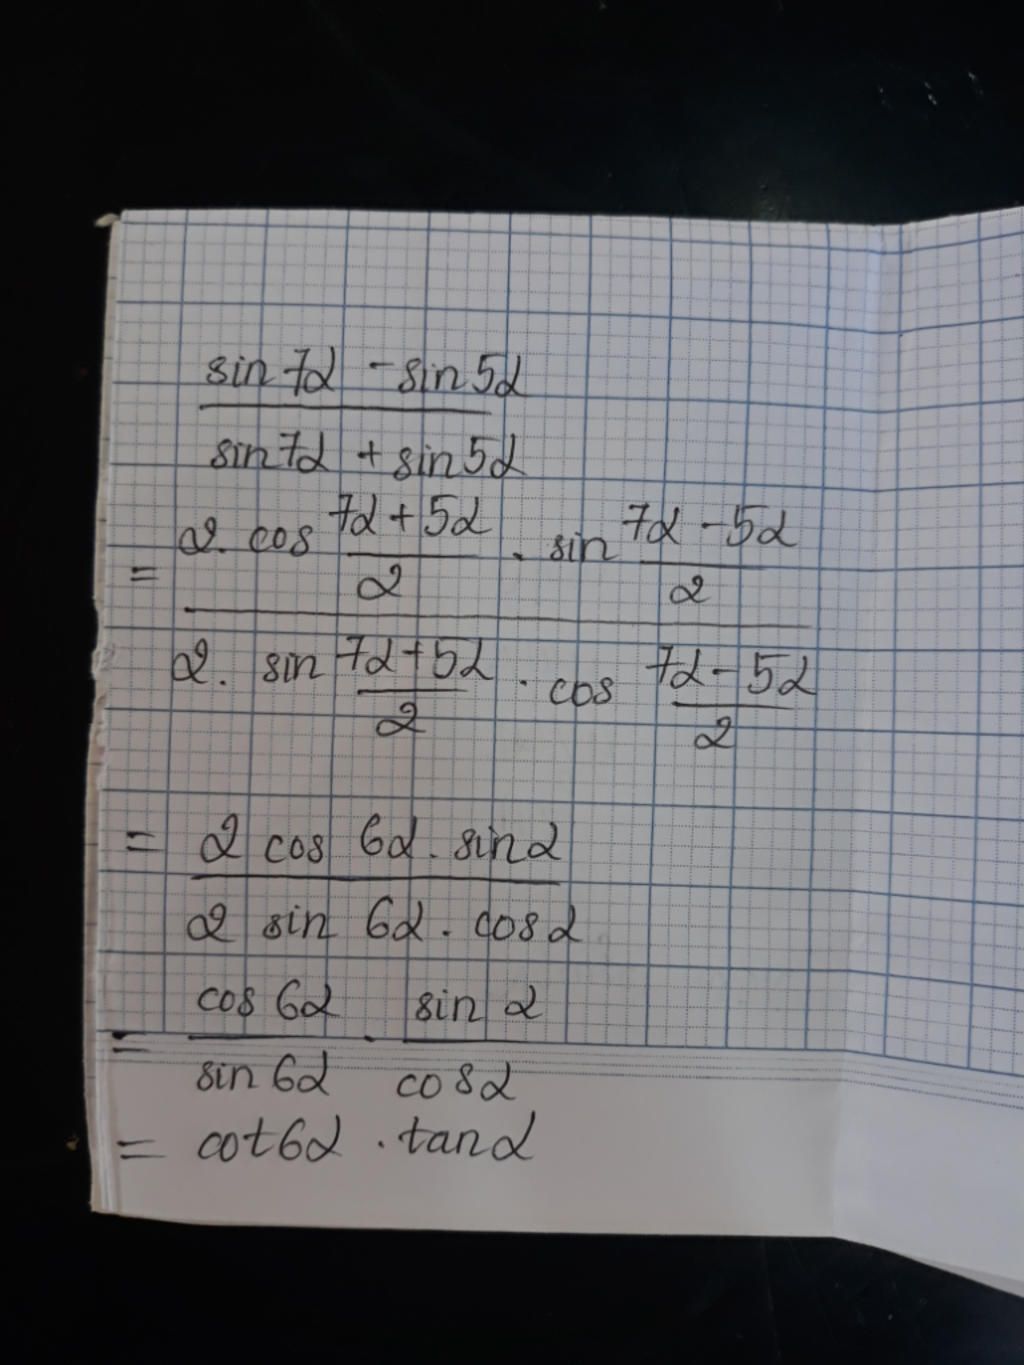 sin 7α - sin 5α
sin 7α + sin 5α
= 2 . cos (7α + 5α)/2 . sin (7α - 5α)/2
2 . sin (7α + 5α)/2 . cos (7α - 5α)/2
= 2 cos 6α . sin α
2 sin 6α . cos α
= cos 6α . sin α
sin 6α cos α
= cot 6α . tan α